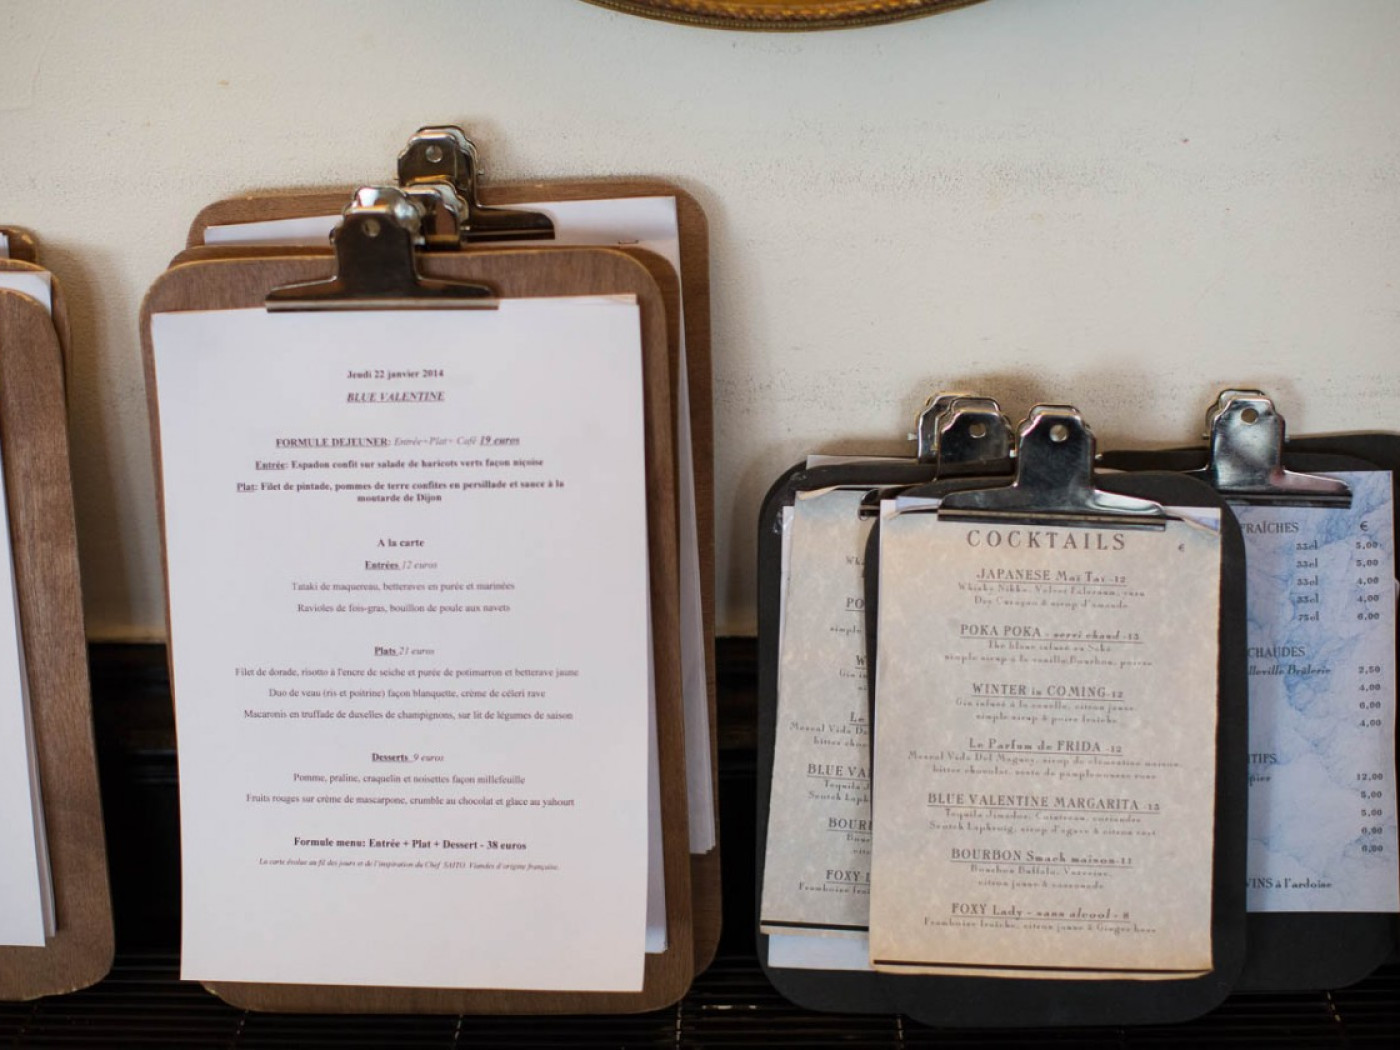 Jeudi 22 janvier 2014
BLUE VALENTINE
FORMULE DEJEUNER: Entrée+Plat+ Café 19 euros
Entrée: Espadon confit sur salade de haricots verts façon niçoise
Plat: Filet de pintade, pommes de terre confites en persillade et sauce à la
moutarde de Dijon
A la carte
Entrées 12 euros
Tataki de maquereau, betteraves en purée et marinées
Ravioles de fois-gras, bouillon de poule aux navets
Plats 21 euros
Filet de dorade, risotto à l'encre de seiche et purée de potimarron et betterave jaune
Duo de veau (ris et poitrine) façon blanquette, crème de céleri rave
Macaronis en truffade de duxelles de champignons, sur lit de légumes de saison
Desserts 9 euros
Pomme, praline, craquelin et noisettes façon millefeuille
Fruits rouges sur crème de mascarpone, crumble au chocolat et glace au yahourt
Formule menu: Entrée + Plat + Dessert - 38 euros
La carte évolue au fil des jours et de l'inspiration du Chef SAITO. Viandes d'origine française.
PO
simple
W
Gin in
Le
Mezcal Vida De
bitter choc
BLUE VA
Tequila J
BOUR
FOXY L
Framboise fraî
COCKTAILS €
JAPANESE Maï Taï -12
Whisky Nikka, Velvet Falernum, yuzu
Dry Curaçao & sirop d'amande
POKA POKA - servi chaud -13
Thé blanc infusé au Saké
simple sirop à la vanille, Bourbon, poivre
WINTER is COMING-12
Gin infusé à la canelle, citron jaune
simple sirop & poire fraîche
Le Parfum de FRIDA -12
Mezcal Vida Del Maguey, sirop de clémentine maison,
bitter chocolat, zeste de pamplemousse rose
BLUE VALENTINE MARGARITA -13
Tequila Jimador, Cointreau, coriandre
Scotch Laphroaig, sirop d'agave & citron vert
BOURBON Smash maison-11
Bourbon Buffalo,
citron jaune &
FOXY Lady - sans alcool - 8
Framboise fraîche, citron jaune & Ginger beer
FRAÎCHES €
33cl 5,00
33cl 5,00
33cl 4,00
33cl 4,00
75cl 6,00
CHAUDES
lleville Brûlerie 2,50
4,00
6,00
4,00
TIFS
12,00
5,00
5,00
6,00
6,00
VINS à l'ardoise